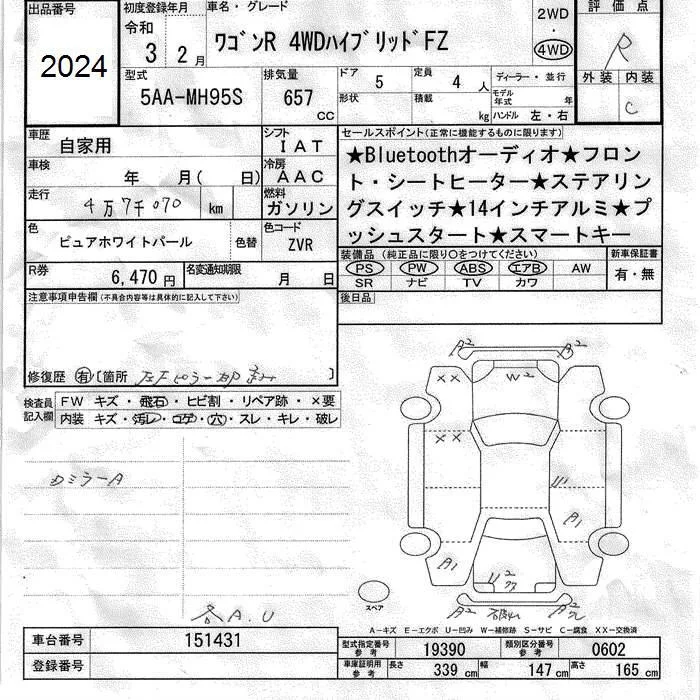 出品番号
2024
初度登録年月
令和
3 年 2 月
車名・グレード
ワゴンR 4WDハイブリッドFZ
2WD
・
4WD
評価点
R
外装 内装
C
型式
5AA-MH95S
排気量
657
cc
ドア
5
定員
4 人
形状
積載
kg
ディーラー・並行
モデル年式 年
ハンドル 左・右
車歴
自家用
シフト
IAT
車検
年 月( 日)
冷房
AAC
走行
4万7千070 km
燃料
ガソリン
色
ピュアホワイトパール
色替
色コード
ZVR
R券
6,470 円
名変通知期限
月 日
セールスポイント(正常に機能するものに限ります)
★Bluetoothオーディオ★フロン
ト・シートヒーター★ステアリン
グスイッチ★14インチアルミ★プ
ッシュスタート★スマートキー
装備品 (純正品に限り○をつけてください)
PS PW ABS エアB AW
SR ナビ TV カワ
新車保証書
有・無
後日品
注意事項申告欄(不具合内容等は具体的に記入して下さい)
修復歴 有 〔箇所 〕
検査員記入欄
FW キズ・飛石・ヒビ割・リペア跡・×要
内装 キズ・汚レ・コゲ・穴・スレ・キレ・破レ
ミラーA
A.U
A2 A2
XX W2
XX
U1
A1
A1
U2
A2
スペア
A－キズ E－エクボ U－凹み W－補修跡 S－サビ C－腐食 XX－交換済
車台番号
151431
登録番号
型式指定番号 参考
19390
類別区分番号 参考
0602
車庫証明用 参考
長さ 339 cm
幅 147 cm
高さ 165 cm